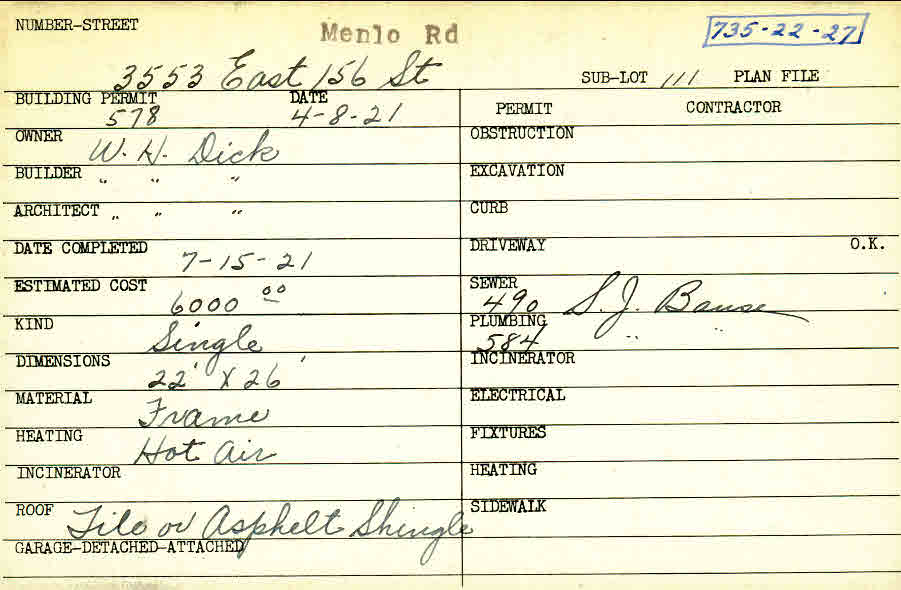 NUMBER-STREET Menlo Rd 735-22-27
3553 East 156 St SUB-LOT 111 PLAN FILE
BUILDING PERMIT DATE PERMIT CONTRACTOR
578 4-8-21
OWNER W. H. Dick OBSTRUCTION
BUILDER " " " EXCAVATION
ARCHITECT " " " CURB
DATE COMPLETED 7-15-21 DRIVEWAY O.K.
ESTIMATED COST 6000 00 SEWER 490 S. J. Bause
KIND Single PLUMBING 584 " "
DIMENSIONS 22' X 26' INCINERATOR
MATERIAL Frame ELECTRICAL
HEATING Hot Air FIXTURES
INCINERATOR HEATING
ROOF Tile or Asphelt Shingle SIDEWALK
GARAGE-DETACHED-ATTACHED